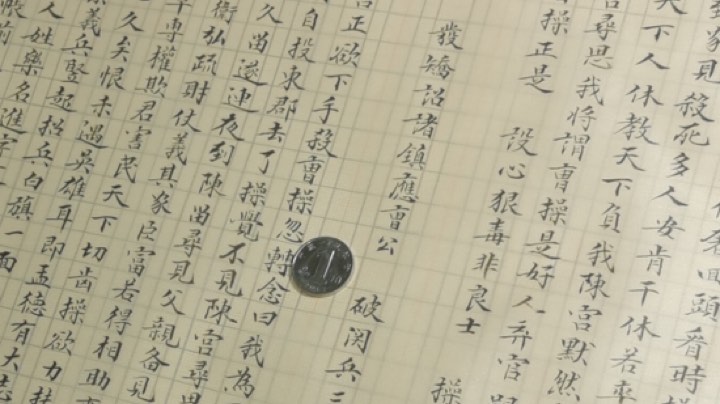 回頭看時
家見殺死多人安肯干休若率
天下人休教天下負我陳宮默然
尋思我將謂曹操是好人弃官
操正是　設心狠毒非良士　操
發矯詔諸鎮應曹公　破関兵三
正欲下手殺曹操忽轉念曰我為
自投東郡去了操覺不見陳宮尋思
久留遂連夜到陳留尋見父親备見
衛弘疏財仗義其家臣富若得相助
專權欺君害民天下切齒操欲力扶
久矣恨未遇英雄耳即孟德有大志
義兵豎起招兵白旗一面
人姓樂名進字
帳前